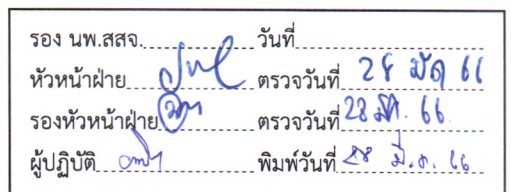 รอง นพ.สสจ. วันที่
หัวหน้าฝ่าย ตรวจวันที่ 28 66
รองหัวหน้าฝ่าย ตรวจวันที่ 28 มีค. 66.
ผู้ปฏิบัติ พิมพ์วันที่ 28 มี.ค. 66